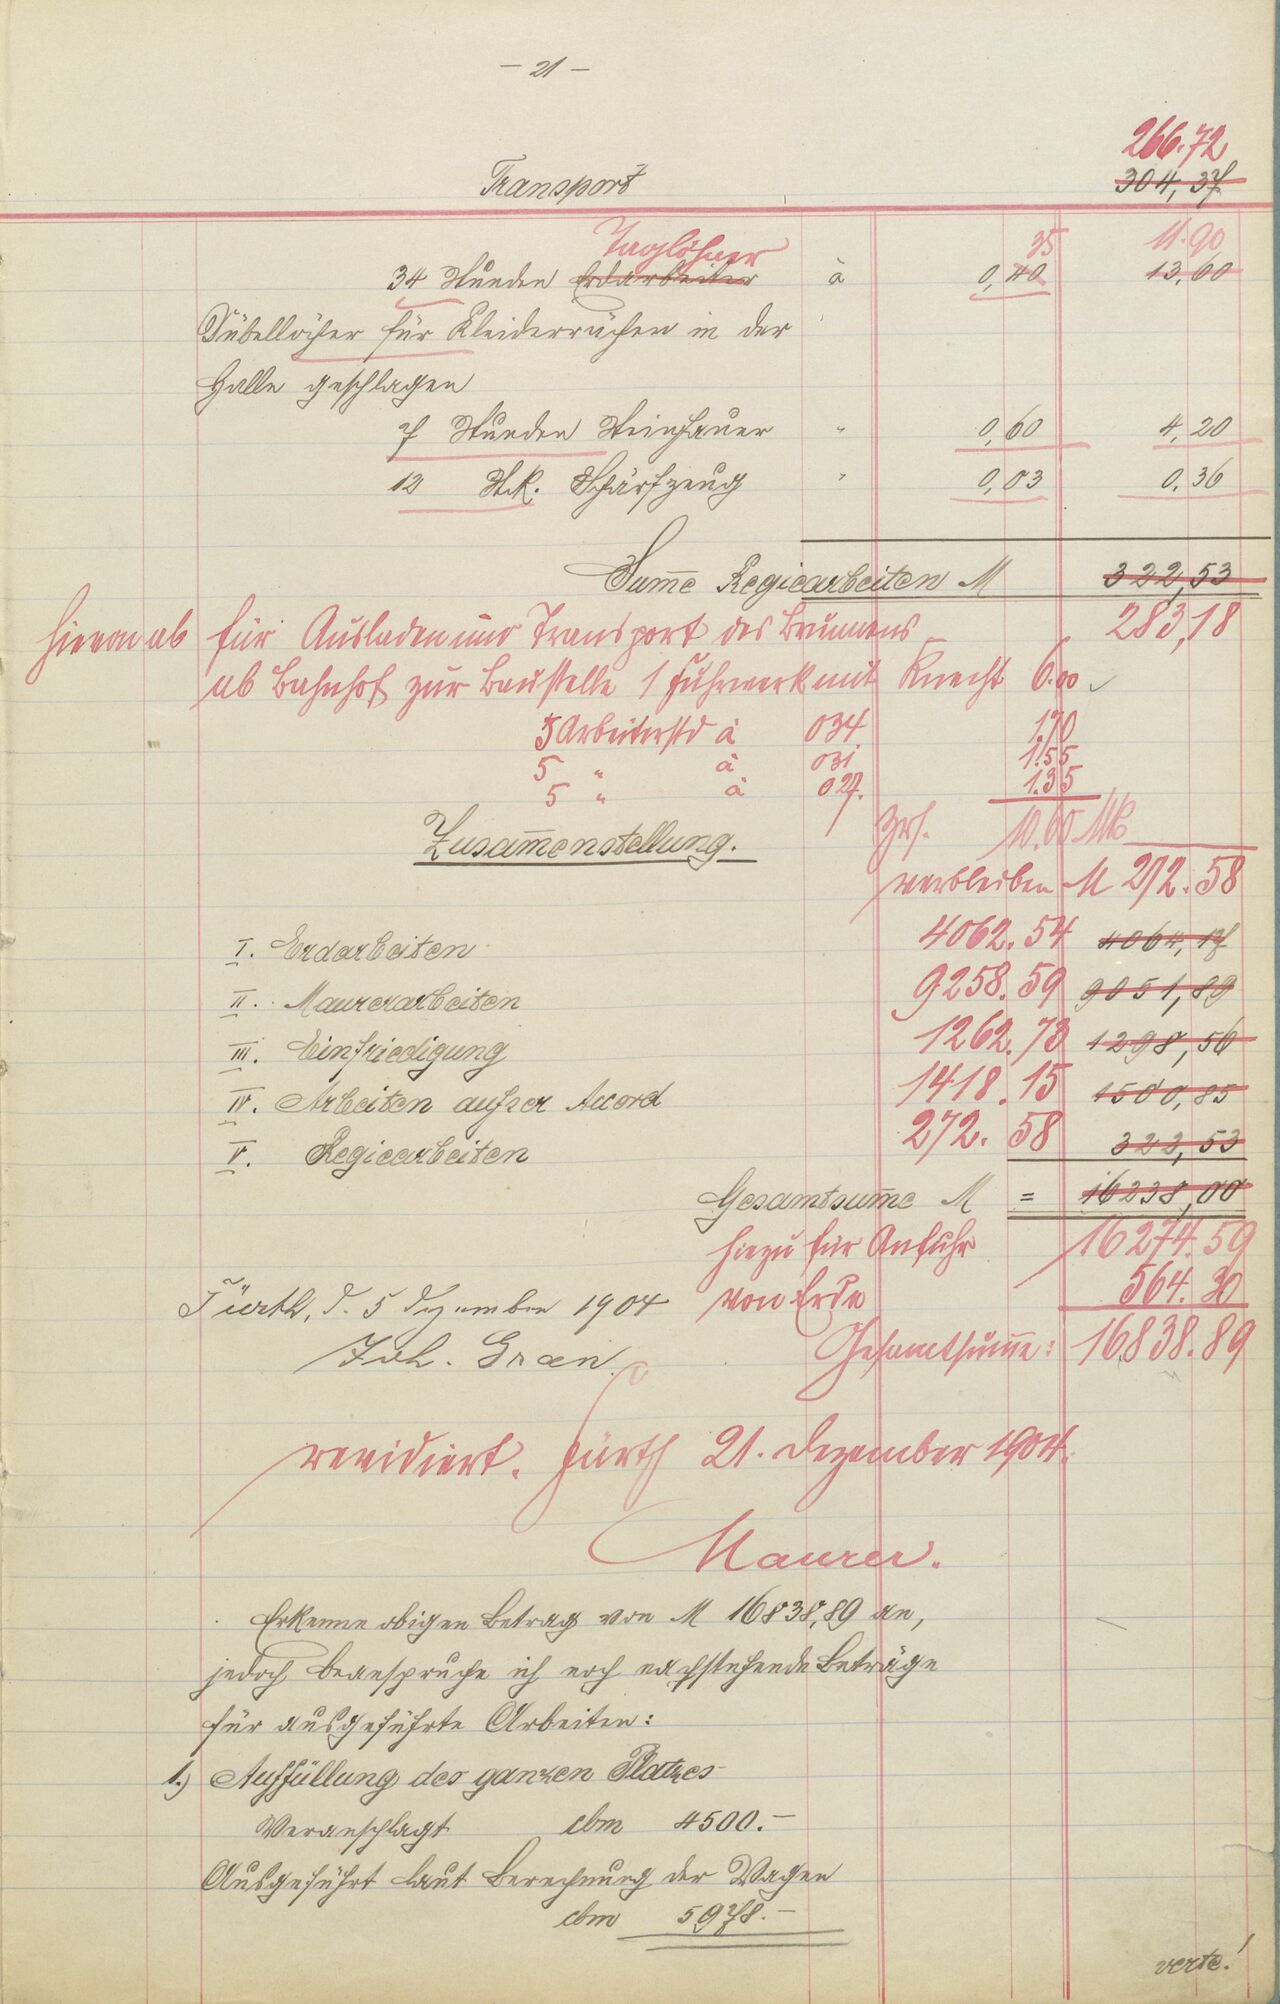 – 21 –
266.72
Transport 304,37
Taglöhner 35 11.90
34 Stunden Erdarbeiter à 0,40 13,60
Dübellöcher für Kleiderrächen in der
Halle geschlagen
7 Stunden Steinhauer " 0,60 4,20
12 Stk. Schärfzeug " 0,03 0.36
Sum̄e Regiearbeiten M 322,53
hievon ab für Ausladen und Transport des Brunnens 283,18
ab Bahnhof zur Baustelle 1 Fuhrwerk mit Knecht 6.00
5 Arbeiterstd à 034. 1.70
5 " à 031 1.55
5 " à 027. 1.35
Zusam̄enstellung. Zus. 10.60 Mk
verbleiben M 272.58
I. Erdarbeiten 4062.54 4064,17
II. Maurerarbeiten 9258.59 9051,89
III. Einfriedigung 1262.73 1298,56
IV. Arbeiten außer Accord 1418.15 1500,85
V. Regiearbeiten 272.58 322,53
Gesamtsum̄e M = 16238,00
hiezu für Anfuhr 16274.59
von Erde 564.30
Fürth, d. 5 Dezember 1904
Gesamtsum̄e: 16838.89
Joh. Gran
revidiert. Fürth 21. Dezember 1904.
Maurer.
Erkenne obigen Betrag von M 16838,89 an,
jedoch beanspruche ich noch nachstehende Beträge
für ausgeführte Arbeiten:
1.) Auffüllung des ganzen Platzes
Veranschlagt cbm 4500.–
Ausgeführt laut Berechnung der Wagen
cbm 5978.–
verte!